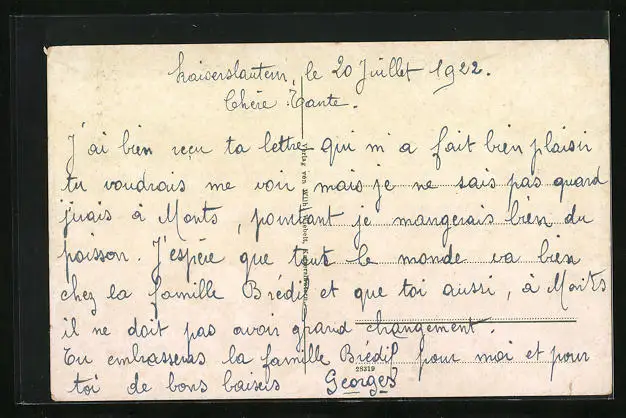 Kaiserslautern, le 20 Juillet 1922.
Chère Tante.
J'ai bien reçu ta lettre qui m'a fait bien plaisir
tu voudrais me voir mais je ne sais pas quand
j'irais à Monts, pourtant je mangerais bien du
poisson. J'espère que tout le monde va bien
chez la famille Brédif et que toi aussi, à Monts
il ne doit pas avoir grand changement.
Tu embrasseras la famille Brédif pour moi et pour
toi de bons baisers Georges
Verlag von Wilh.
28319